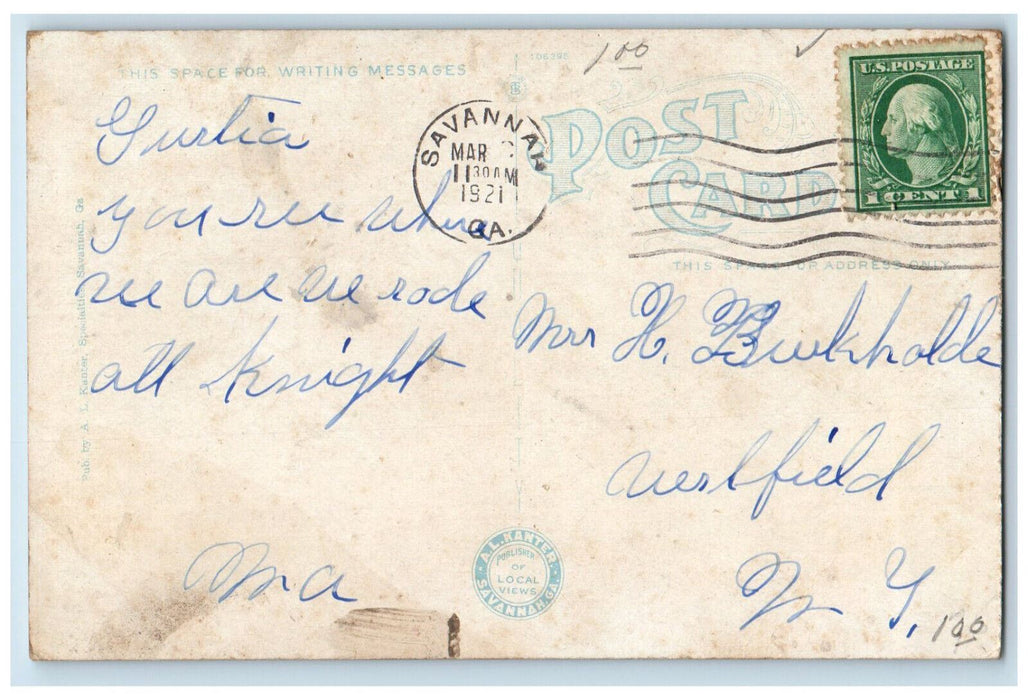 THIS SPACE FOR WRITING MESSAGES
106396
100
POST CARD
U.S. POSTAGE
1 CENT 1
SAVANNAH
MAR
11 30 AM
1921
GA.
THIS SPACE FOR ADDRESS ONLY
Gurtia
you see where
we are we rode
all Knight
Ma
Mrs H. Burkholde
Westfield
N Y,
100
Pub. by A. L. Kanter, Specialties, Savannah, Ga
A. L. KANTER.
PUBLISHER
OF
LOCAL
VIEWS
SAVANNAH, GA.